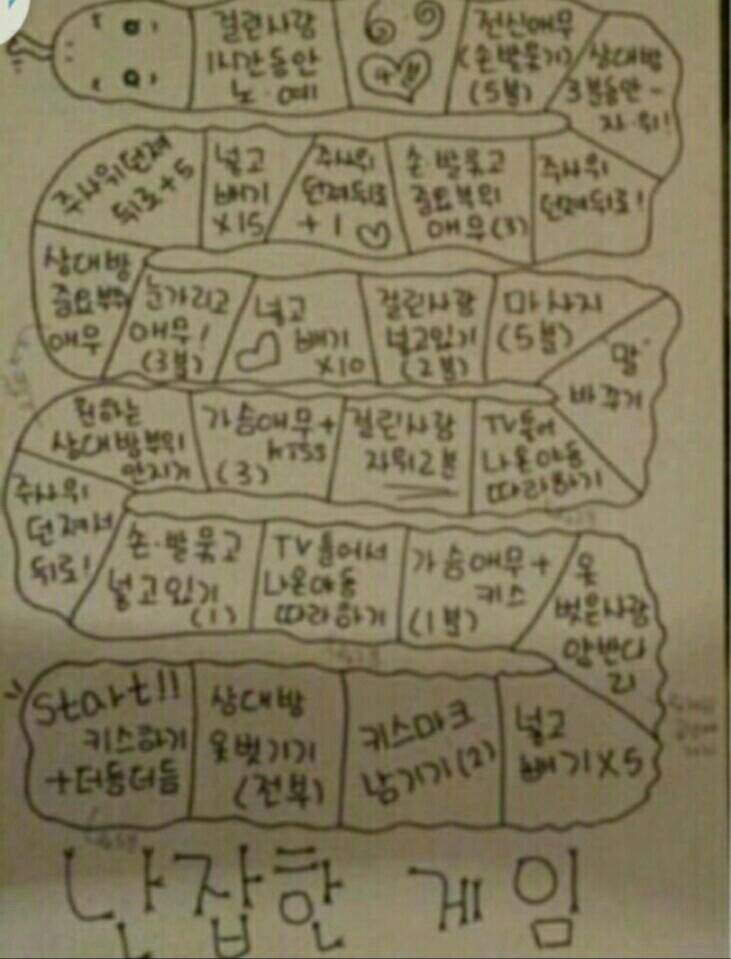 걸린사람
1시간동안
노·예
69
전신애무
(손발묶기)
(5분)
상대방
3분동안-
자·위!
주사위던져
뒤로+5
넣고
빼기
x15
주사위
던져뒤로
+1
손·발묶고
중요부위
애무(3)
주사위
던져뒤로!
상대방
중요부위
애무
눈가리고
애무!
(3분)
넣고
빼기
x10
걸린사람
넣고있기
(2분)
마사지
(5분)
"말"
바꾸기
원하는
상대방부위
만지기
가슴애무+
kiss
(3)
걸린사람
자위2분
TV틀어
나온야동
따라하기
주사위
던져서
뒤로!
손·발묶고
넣고있기
(1)
TV틀어서
나온야동
따라하기
가슴애무+
키스
(1분)
옷
벗은사람
Start!!
키스하기
+더듬더듬
상대방
옷벗기기
(전부)
키스마크
남기기(2)
넣고
빼기X5
난잡한 게임